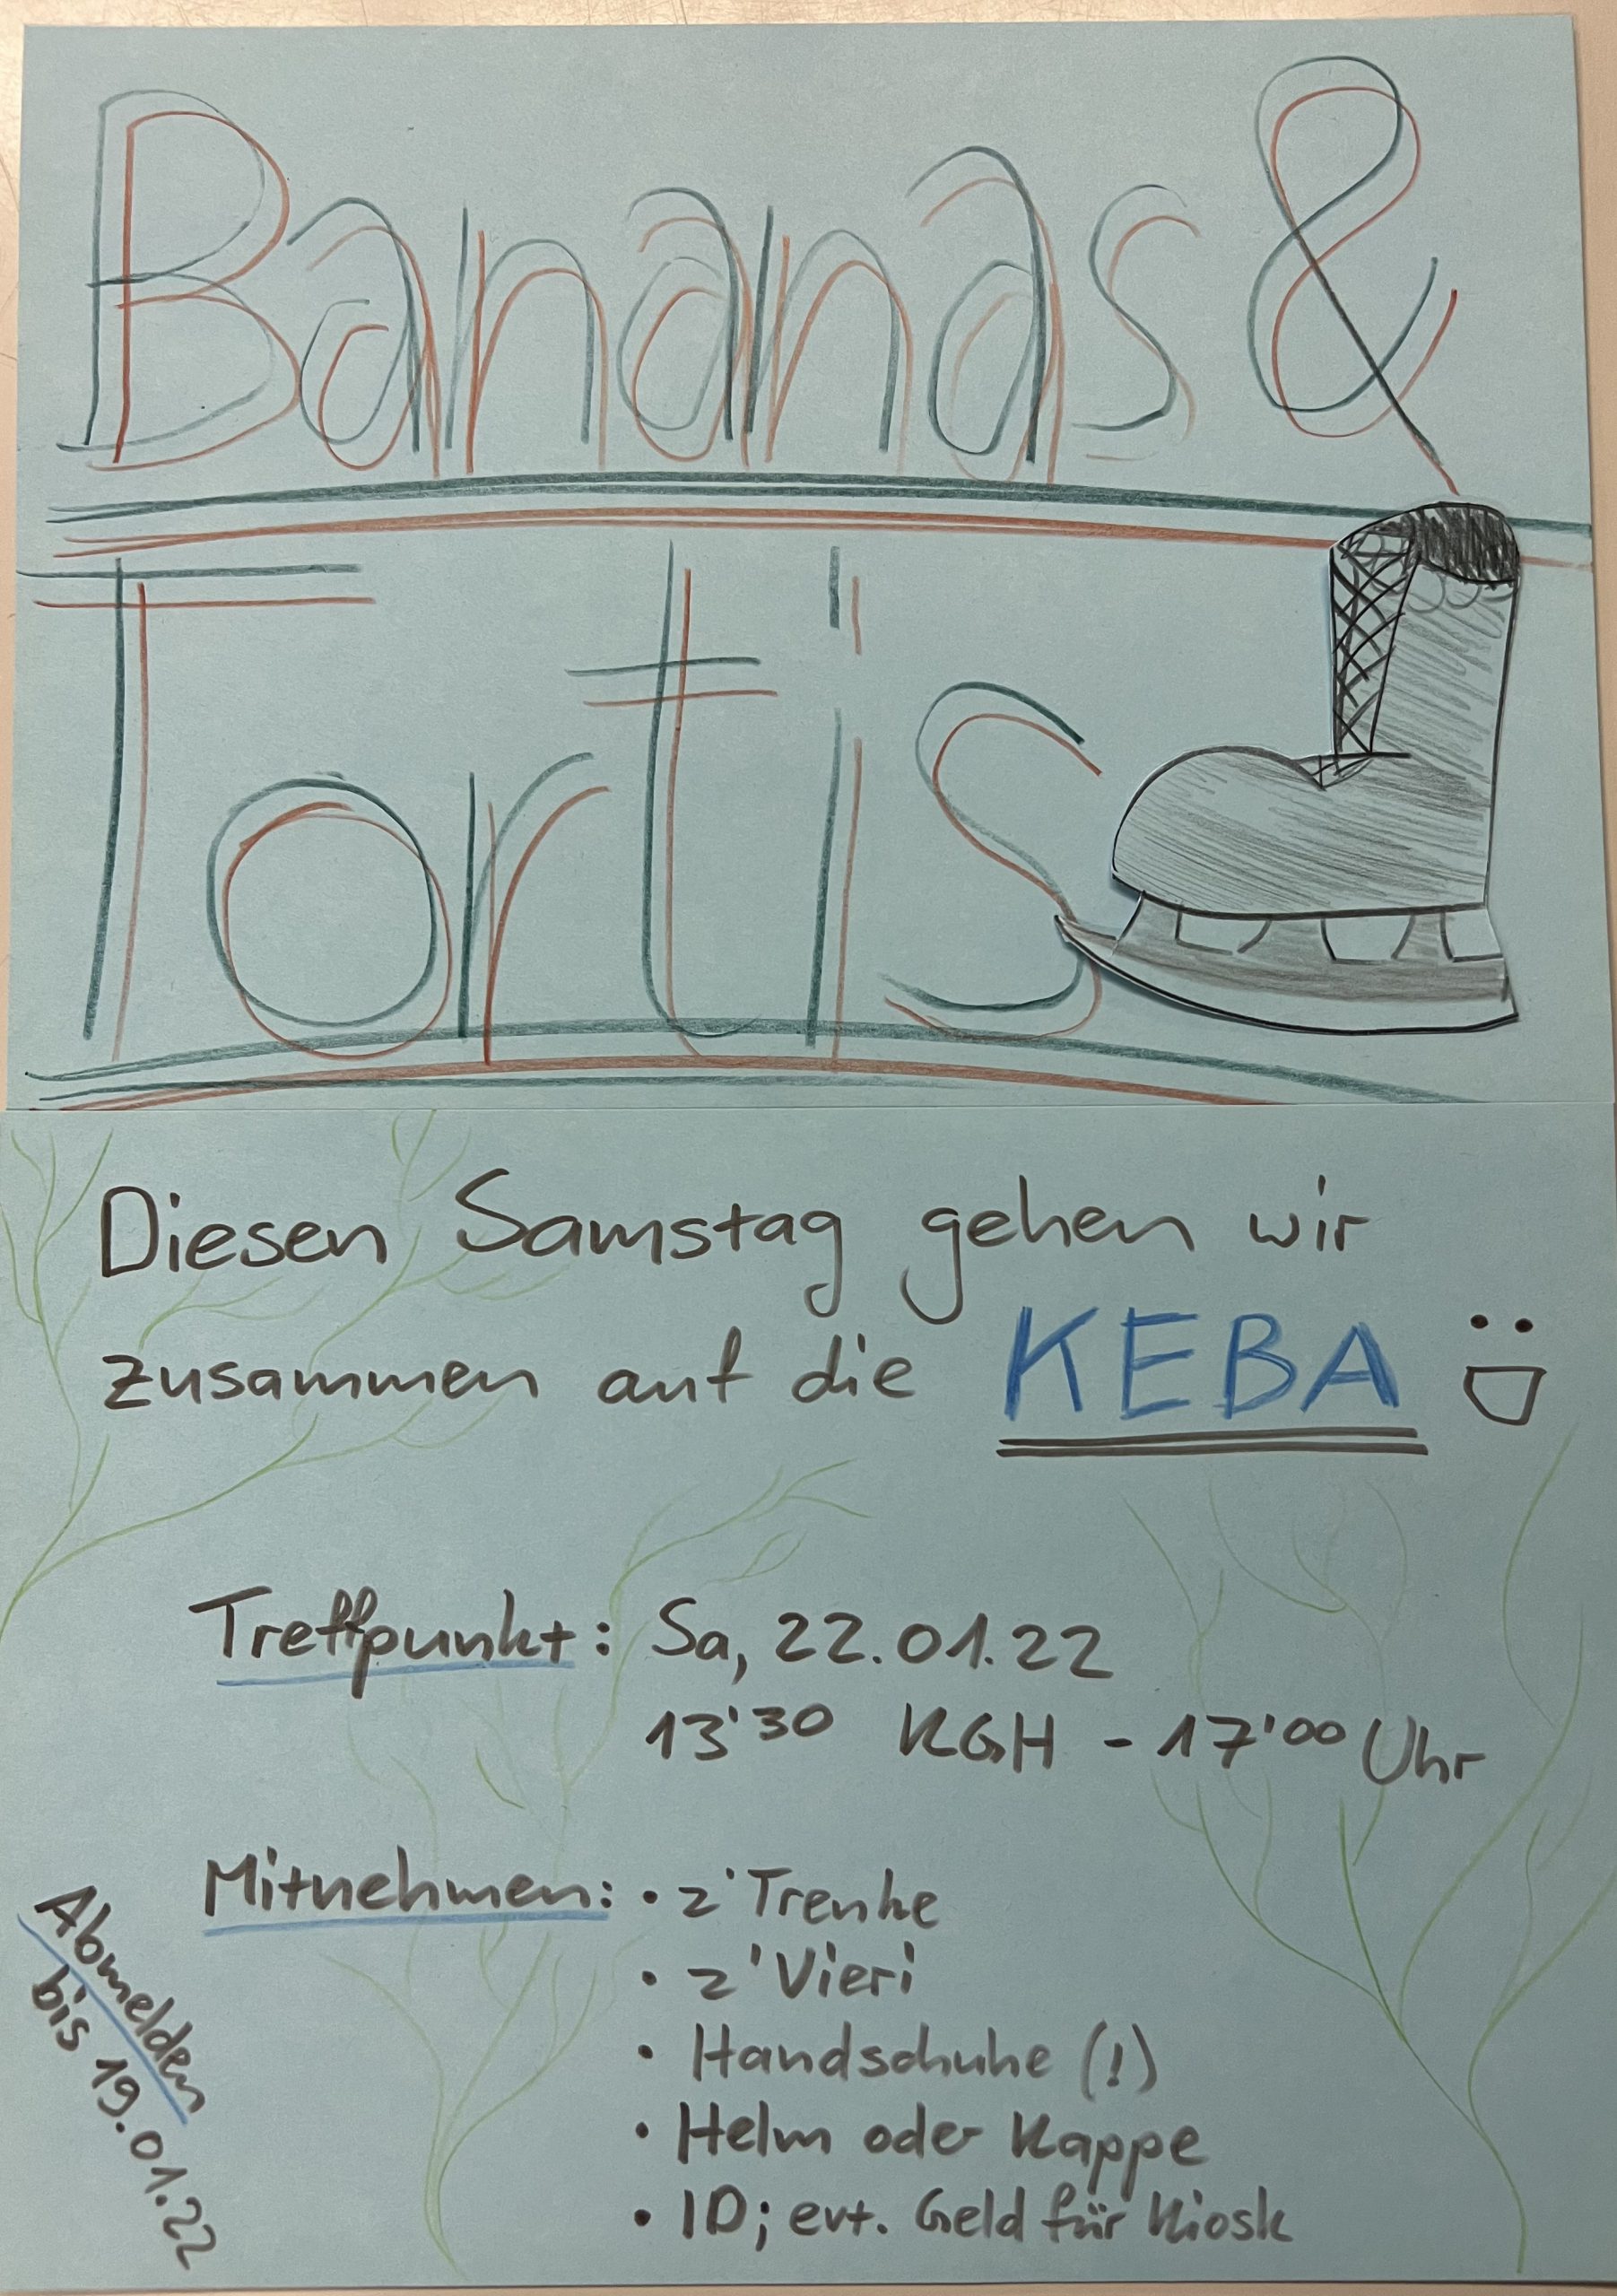 Bananas &
Tortis
Diesen Samstag gehen wir
zusammen auf die KEBA
Treffpunkt: Sa, 22.01.22
13'30 KGH - 17'00 Uhr
Mitnehmen: • z'Trenke
• z'Vieri
• Handschuhe (!)
• Helm oder Kappe
• ID; evt. Geld für Kiosk
Abmelden
bis 19.01.22